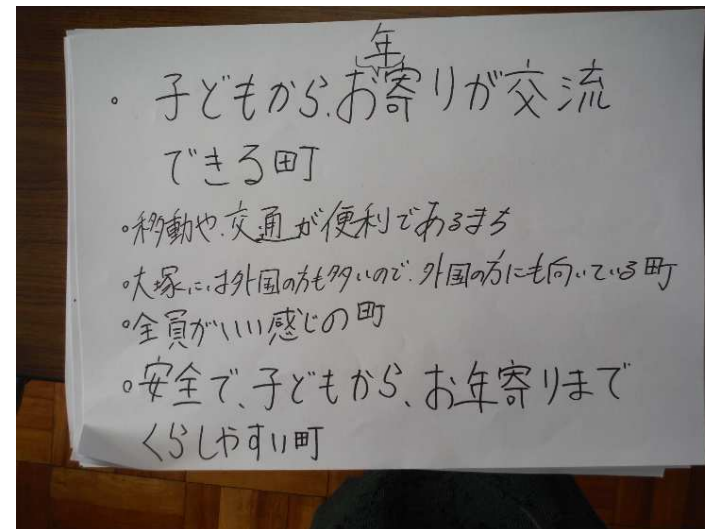 。子どもから、お年寄りが交流
できる町
。移動や、交通が便利であるまち
。大塚には外国の方も多いので、外国の方にも向いている町
。全員がいい感じの町
。安全で、子どもから、お年寄りまで
くらしやすい町